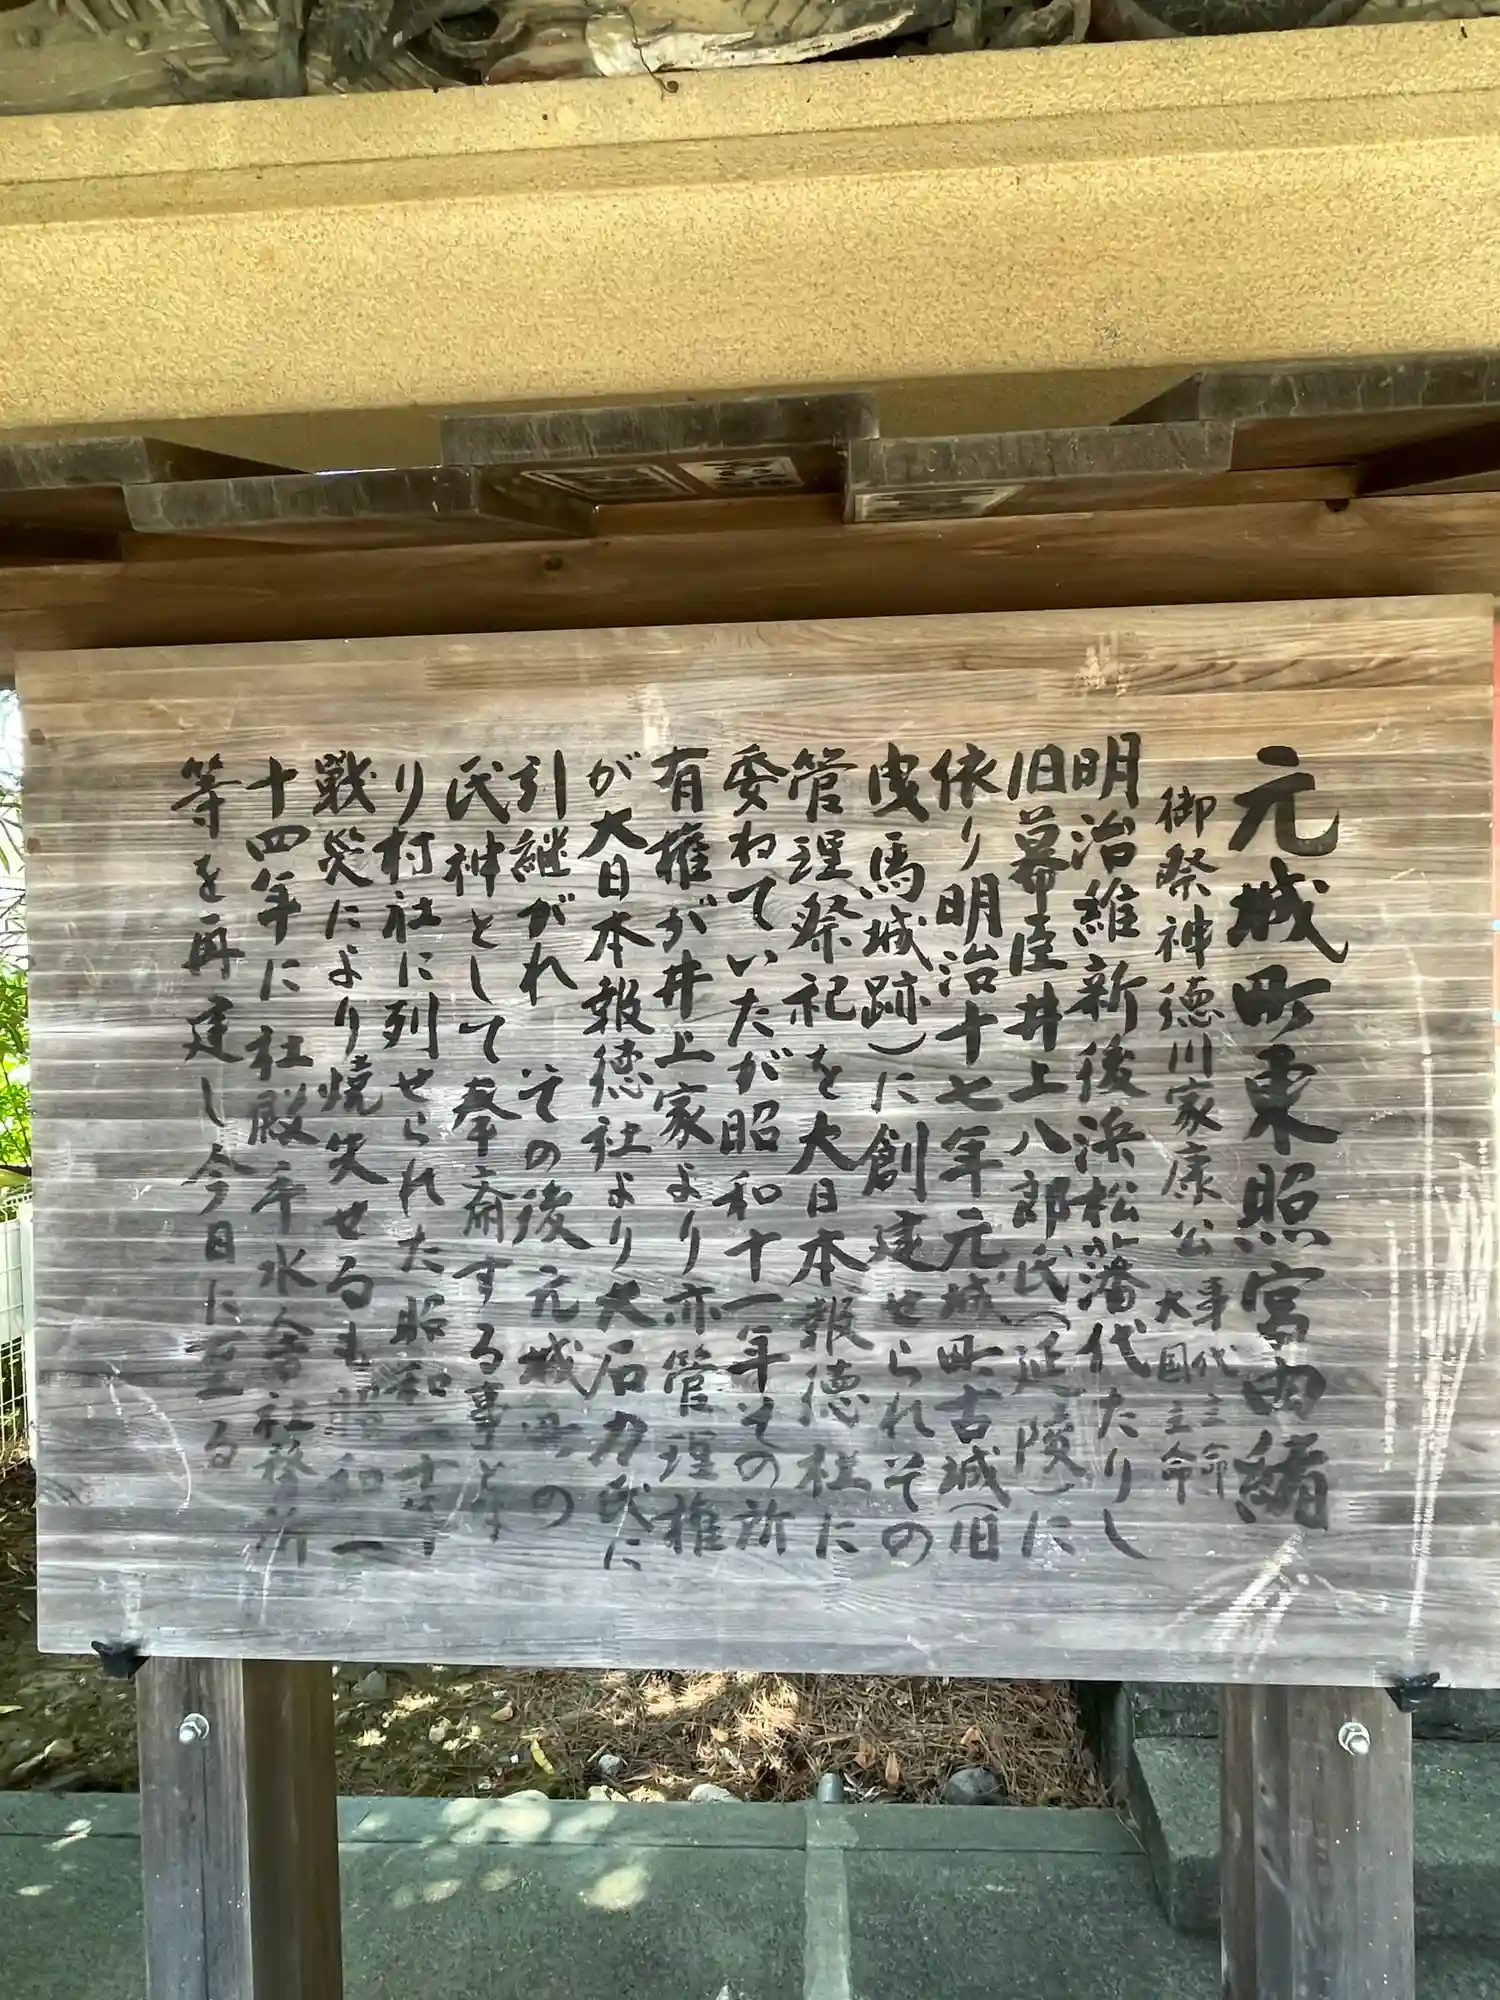 元城町東照宮由緒
御祭神徳川家康公 事代主命
大国主命
明治維新後浜松藩代たりし
旧幕臣井上八郎氏(延陵)に
依り明治十七年元城町古城(旧
曳馬城跡)に創建せられその
管理祭祀を大日本報徳社に
委ねていたが昭和十一年その所
有権が井上家より亦管理権
が大日本報徳社より大石力氏に
引継がれ その後 元城町の
氏神として奉斎する事とな
り村社に列せられた昭和二十年
戦災により焼失せるも昭和三
十四年に社殿手水舎社務所
等を再建し今日に至る